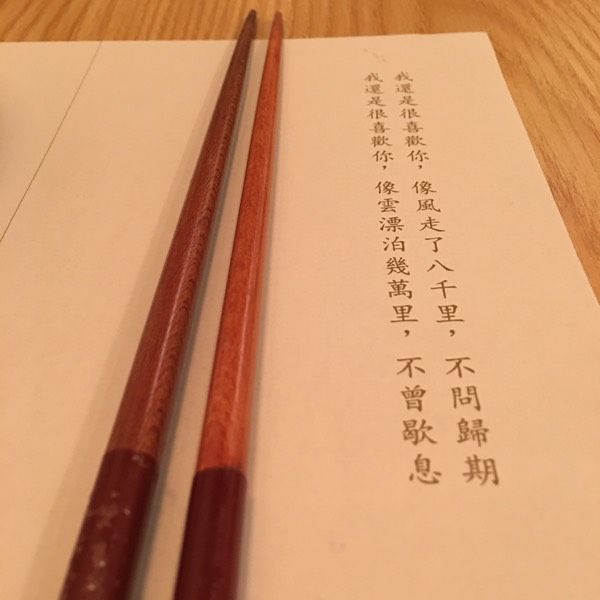 我還是很喜歡你，像風走了八千里，不問歸期
我還是很喜歡你，像雲漂泊幾萬里，不曾歇息